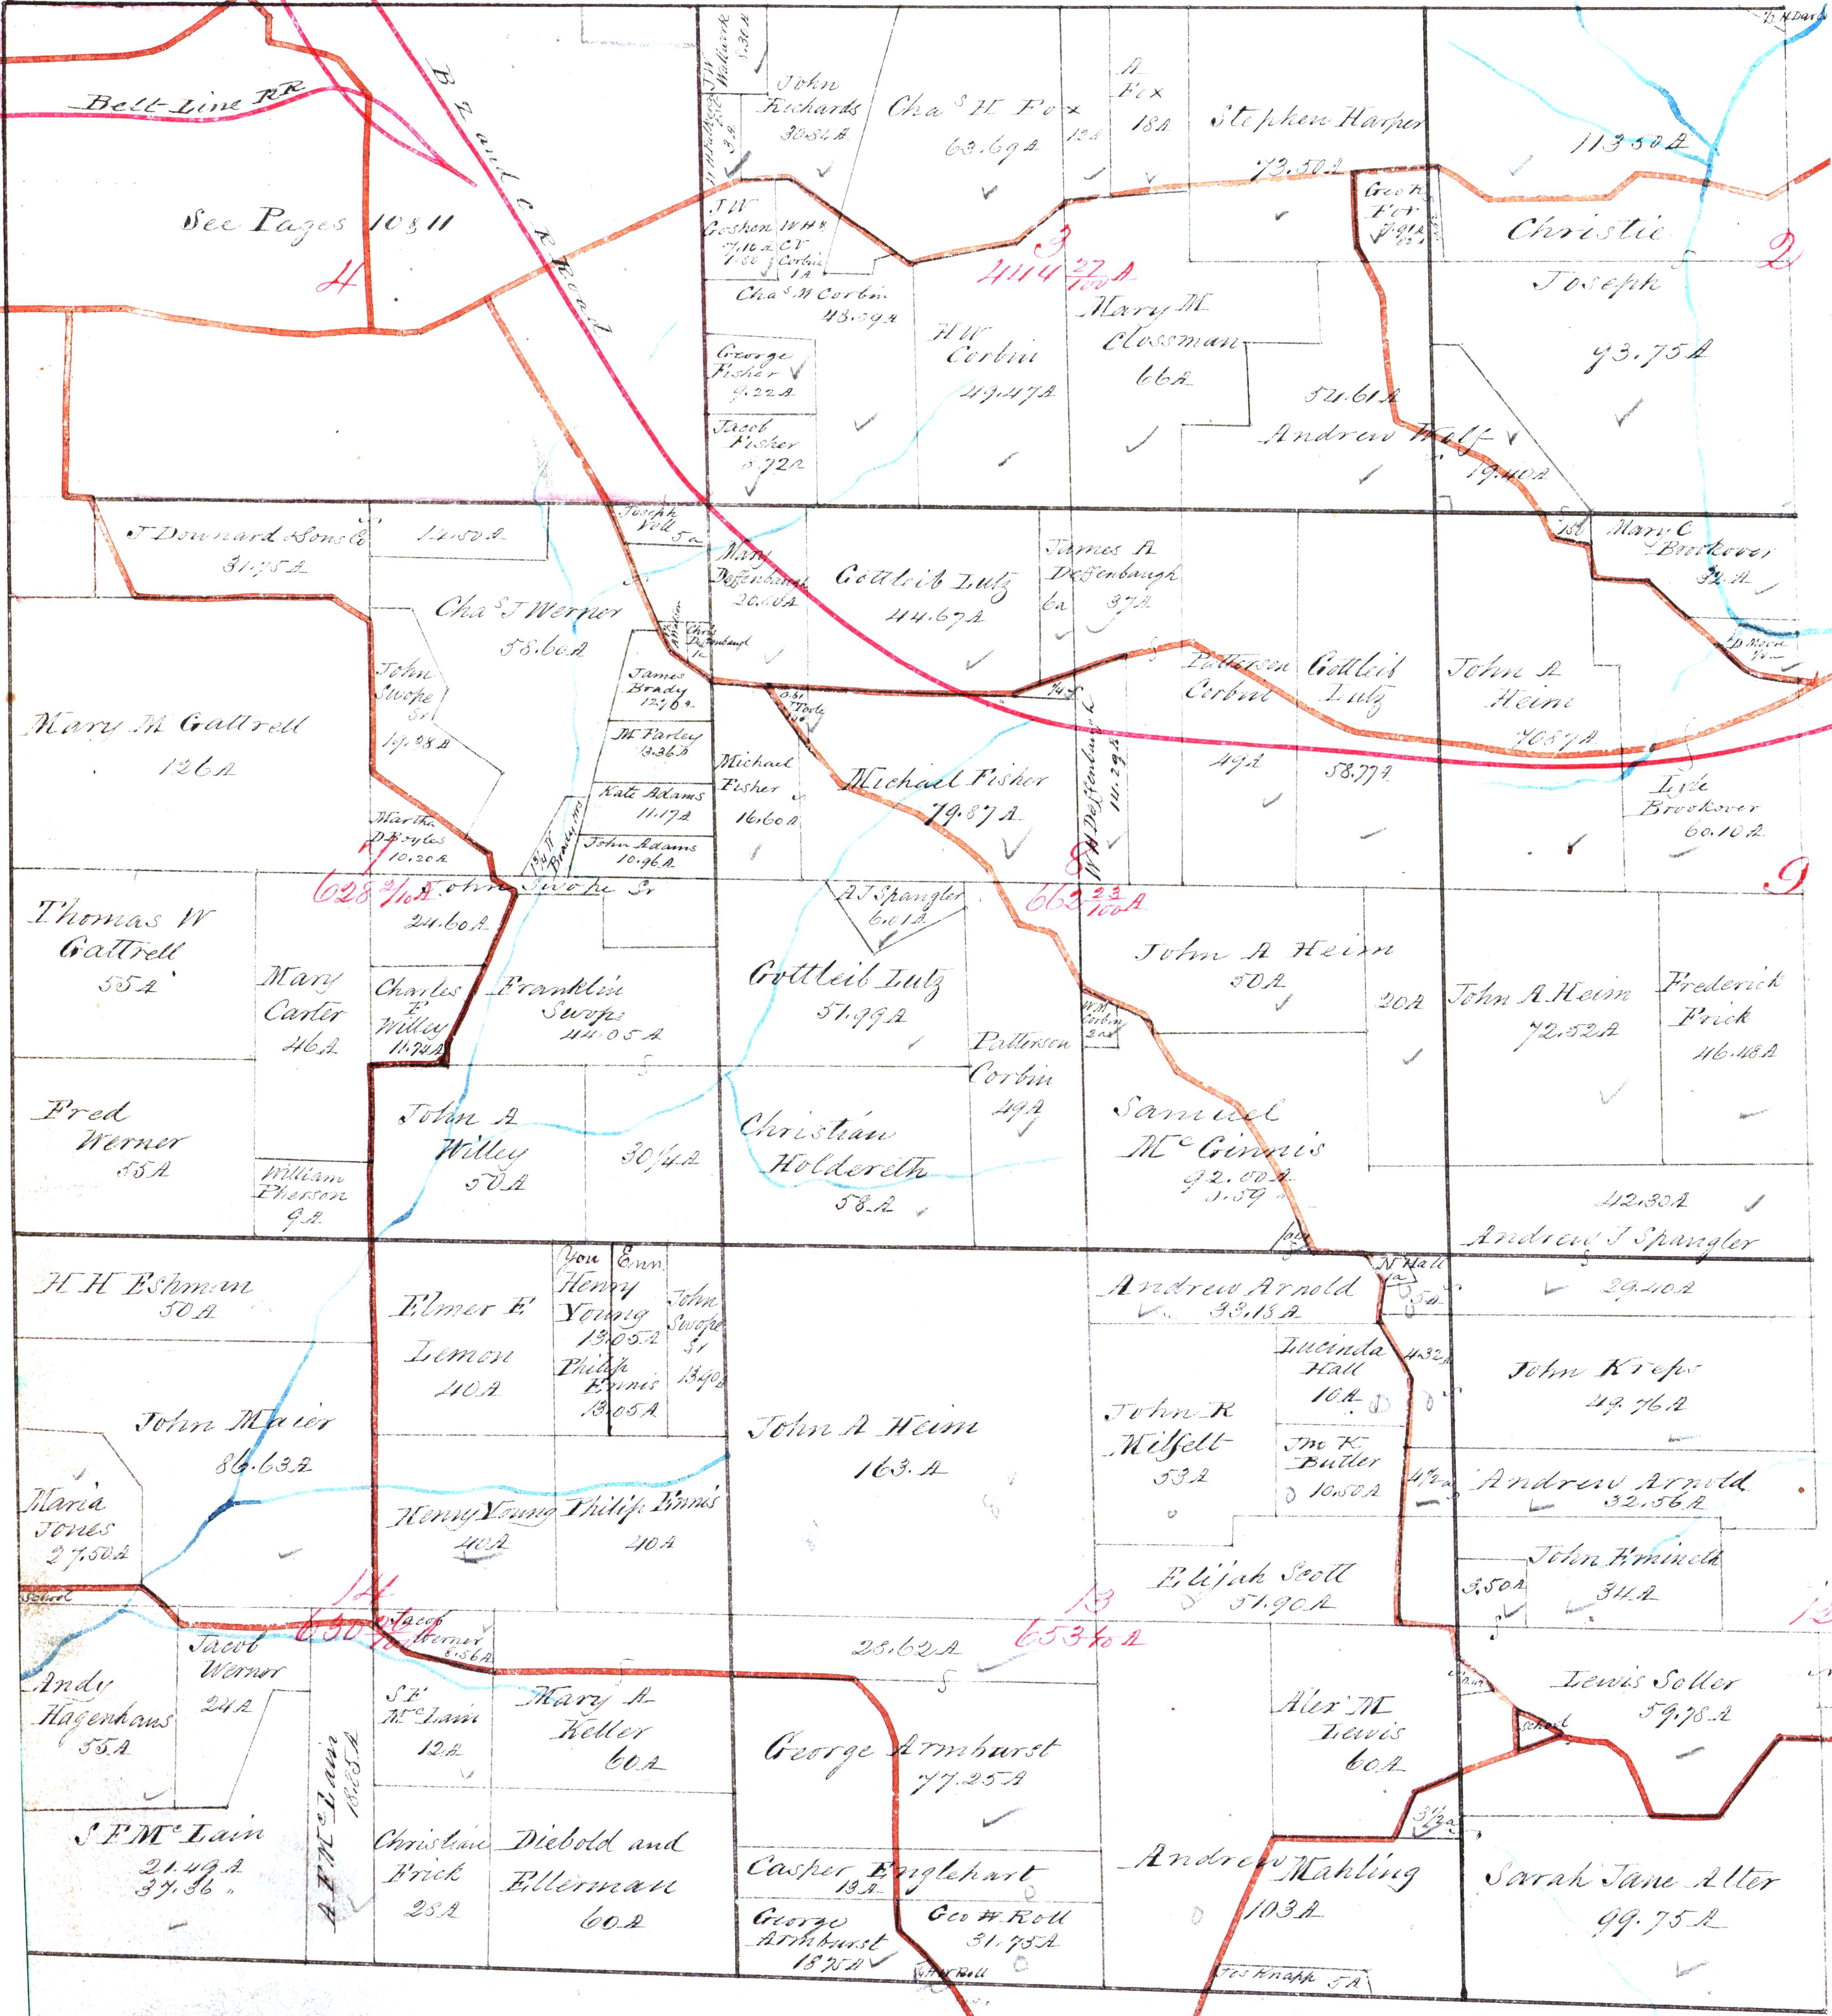 ½ H Davis
Belt-Line RR
B Z and C R Road
See Pages 10 & 11
4
J W
Wallwork
5.30 A
3 A
John
Richards
30.84 A
Chaˢ H Fox
63.69 A
12 A
A
Fox
18 A
Stephen Harper
73.50 A
113.50 A
J W
Goshen
7.10 A
W H &
C V
Corbin
1 A
Geo K
Fox
Christie
Joseph
93.75 A
2
3
444 27/100 A
Chaˢ M Corbin
H W
Corbin
49.47 A
Mary M
Clossman
66 A
George
Fisher
9.22 A
Jacob
Fisher
54.61 A
Andrew Wolf
19.40 A
J Downard & Sons Co
31.75 A
14.50 A
Joseph
Voll
5 a
Mary
Deffenbaugh
Gottleib Lutz
44.67 A
James A
Deffenbaugh
6 a
37 A
Mary C
Brookover
32 A
Chaˢ J Werner
58.60 A
Chris
Deffenbaugh
John
Swope
Sr
19.28 A
James
Brady
M Farley
13.36 A
Kate Adams
11.17 A
John Adams
10.96 A
Mary M Gattrell
126 A
Martha
D Boyles
10.20 A
Michael
Fisher
16.60 A
Michael Fisher
79.87 A
W H Deffenbaugh
14.29 A
Patterson
Corbin
49 A
Gottleib
Lutz
58.77 A
John A
Heim
70.87 A
Lyle
Brookover
60.10 A
7
628 2/10 A
8
662 23/100 A
9
John Swope Sr
24.60 A
A J Spangler
6.01 A
Thomas W
Gattrell
55 A
Mary
Carter
46 A
Charles
E
Willey
11.74 A
Franklin
Swope
44.05 A
Gottleib Lutz
51.99 A
Patterson
Corbin
49 A
W M
Corbin
2 a
John A Heim
50 A
20 A
John A. Heim
72.52 A
Frederick
Frick
46.48 A
Fred
Werner
55 A
William
Pherson
9 A
John A
Willey
50 A
30 1/4 A
Christian
Holdereth
58 A
Samuel
Mᶜ Ginnis
92.00 A
42.30 A
Andrew J Spangler
H H Eshman
50 A
Elmer E
Lemon
40 A
You
Enn
Henry
Young
13.05 A
Philip
Ennis
13.05 A
John
Swope
Sr
13.90 A
Andrew Arnold
33.18 A
N Hall
1 a
5 A
29.40 A
John Maier
86.63 A
John A Heim
163. A
Lucinda
Hall
10 A
4.32 A
John Kreps
49.76 A
John R
Milfelt
53 A
Jno K
Butler
10.50 A
4 1/2 a
Andrew Arnold
32.56 A
Maria
Jones
27.50 A
Henry Young
40 A
Philip Ennis
40 A
Elijah Scott
51.90 A
3.50 A
John Emineth
34 A
School
14
13
12
Jacob
Werner
8.56 A
28.62 A
Andy
Hagenhaus
55 A
Jacob
Werner
24 A
A F Mᶜ Lain
18.85 A
S F
Mᶜ Lain
12 A
Mary A
Keller
60 A
George Armhurst
77.25 A
Alex M
Lewis
60 A
Lewis Soller
59.78 A
School
3 1/2 a
S F Mᶜ Lain
21.49 A
37.36 "
Christian
Frick
28 A
Diebold and
Ellerman
60 A
Casper Englehart
13 A
George
Armburst
18.75 A
Geo W Roll
31.75 A
H W Roll
Andrew Mahling
103 A
Jos Knapp 5 A
Sarah Jane Alter
99.75 A